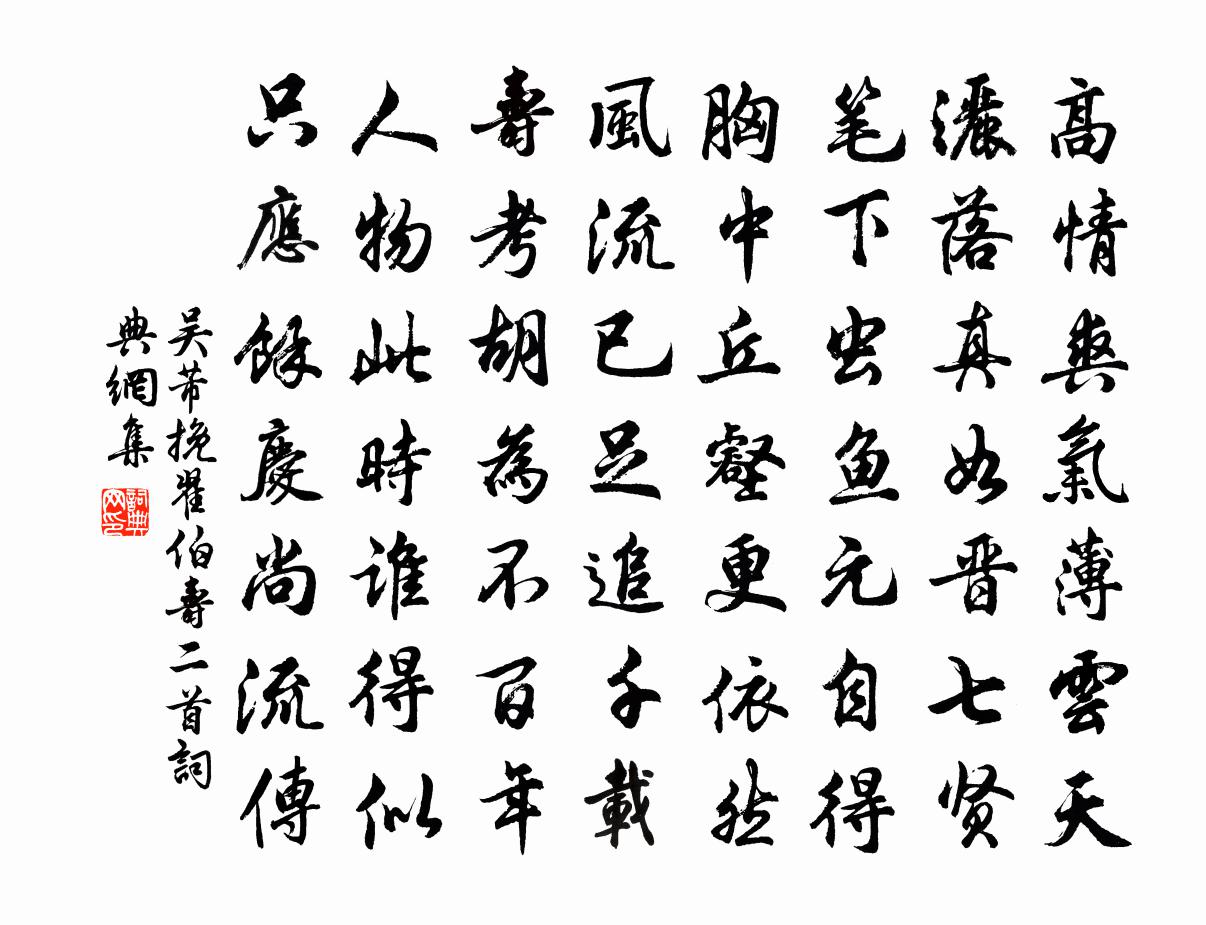 高情爽氣薄雲天
灑落真如晋七贤
笔下虫魚元自得
胸中丘壑更依然
風流已足追千載
壽考胡為不百年
人物此時谁得似
只應餘慶尚流傳
吴芾挽翟伯壽二首詞
典網集
詞典
网印